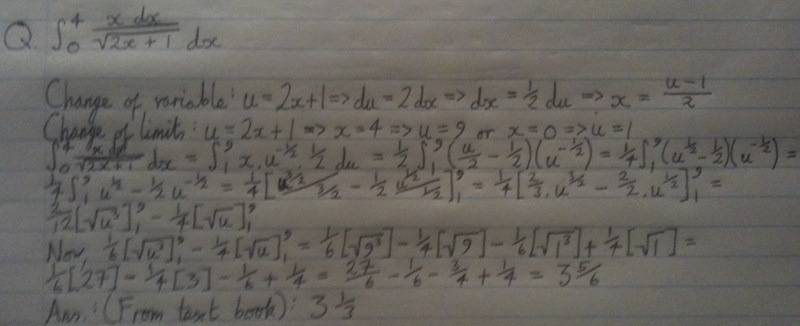 Q. ∫₀⁴ x dx/√(2x+1) dx
Change of variable: u = 2x+1 => du = 2dx => dx = ½ du => x = (u-1)/2
Change of limits: u = 2x+1 => x = 4 => u = 9 or x = 0 => u = 1
∫₀⁴ x dx/√(2x+1) dx = ∫₁⁹ x. u^(-½). ½ du = ½ ∫₁⁹ (u/2 - ½)(u^(-½)) = ¼ ∫₁⁹ (u^(½) - ½)(u^(-½)) =
¼ ∫₁⁹ u^(½) - ½ u^(-½) = ¼ [u^(3/2)/(3/2) - ½ u^(½)/(½)]₁⁹ = ¼ [⅔. u^(3/2) - 2/2. u^(½)]₁⁹ =
2/12 [√u³]₁⁹ - ¼ [√u]₁⁹
Now, ⅙ [√u³]₁⁹ - ¼ [√u]₁⁹ = ⅙ [√9³] - ¼ [√9] - ⅙ [√1³] + ¼ [√1] =
⅙ [27] - ¼ [3] - ⅙ + ¼ = 27/6 - ⅙ - ¾ + ¼ = 3 ⅚
Ans.: (From text book): 3 ⅓